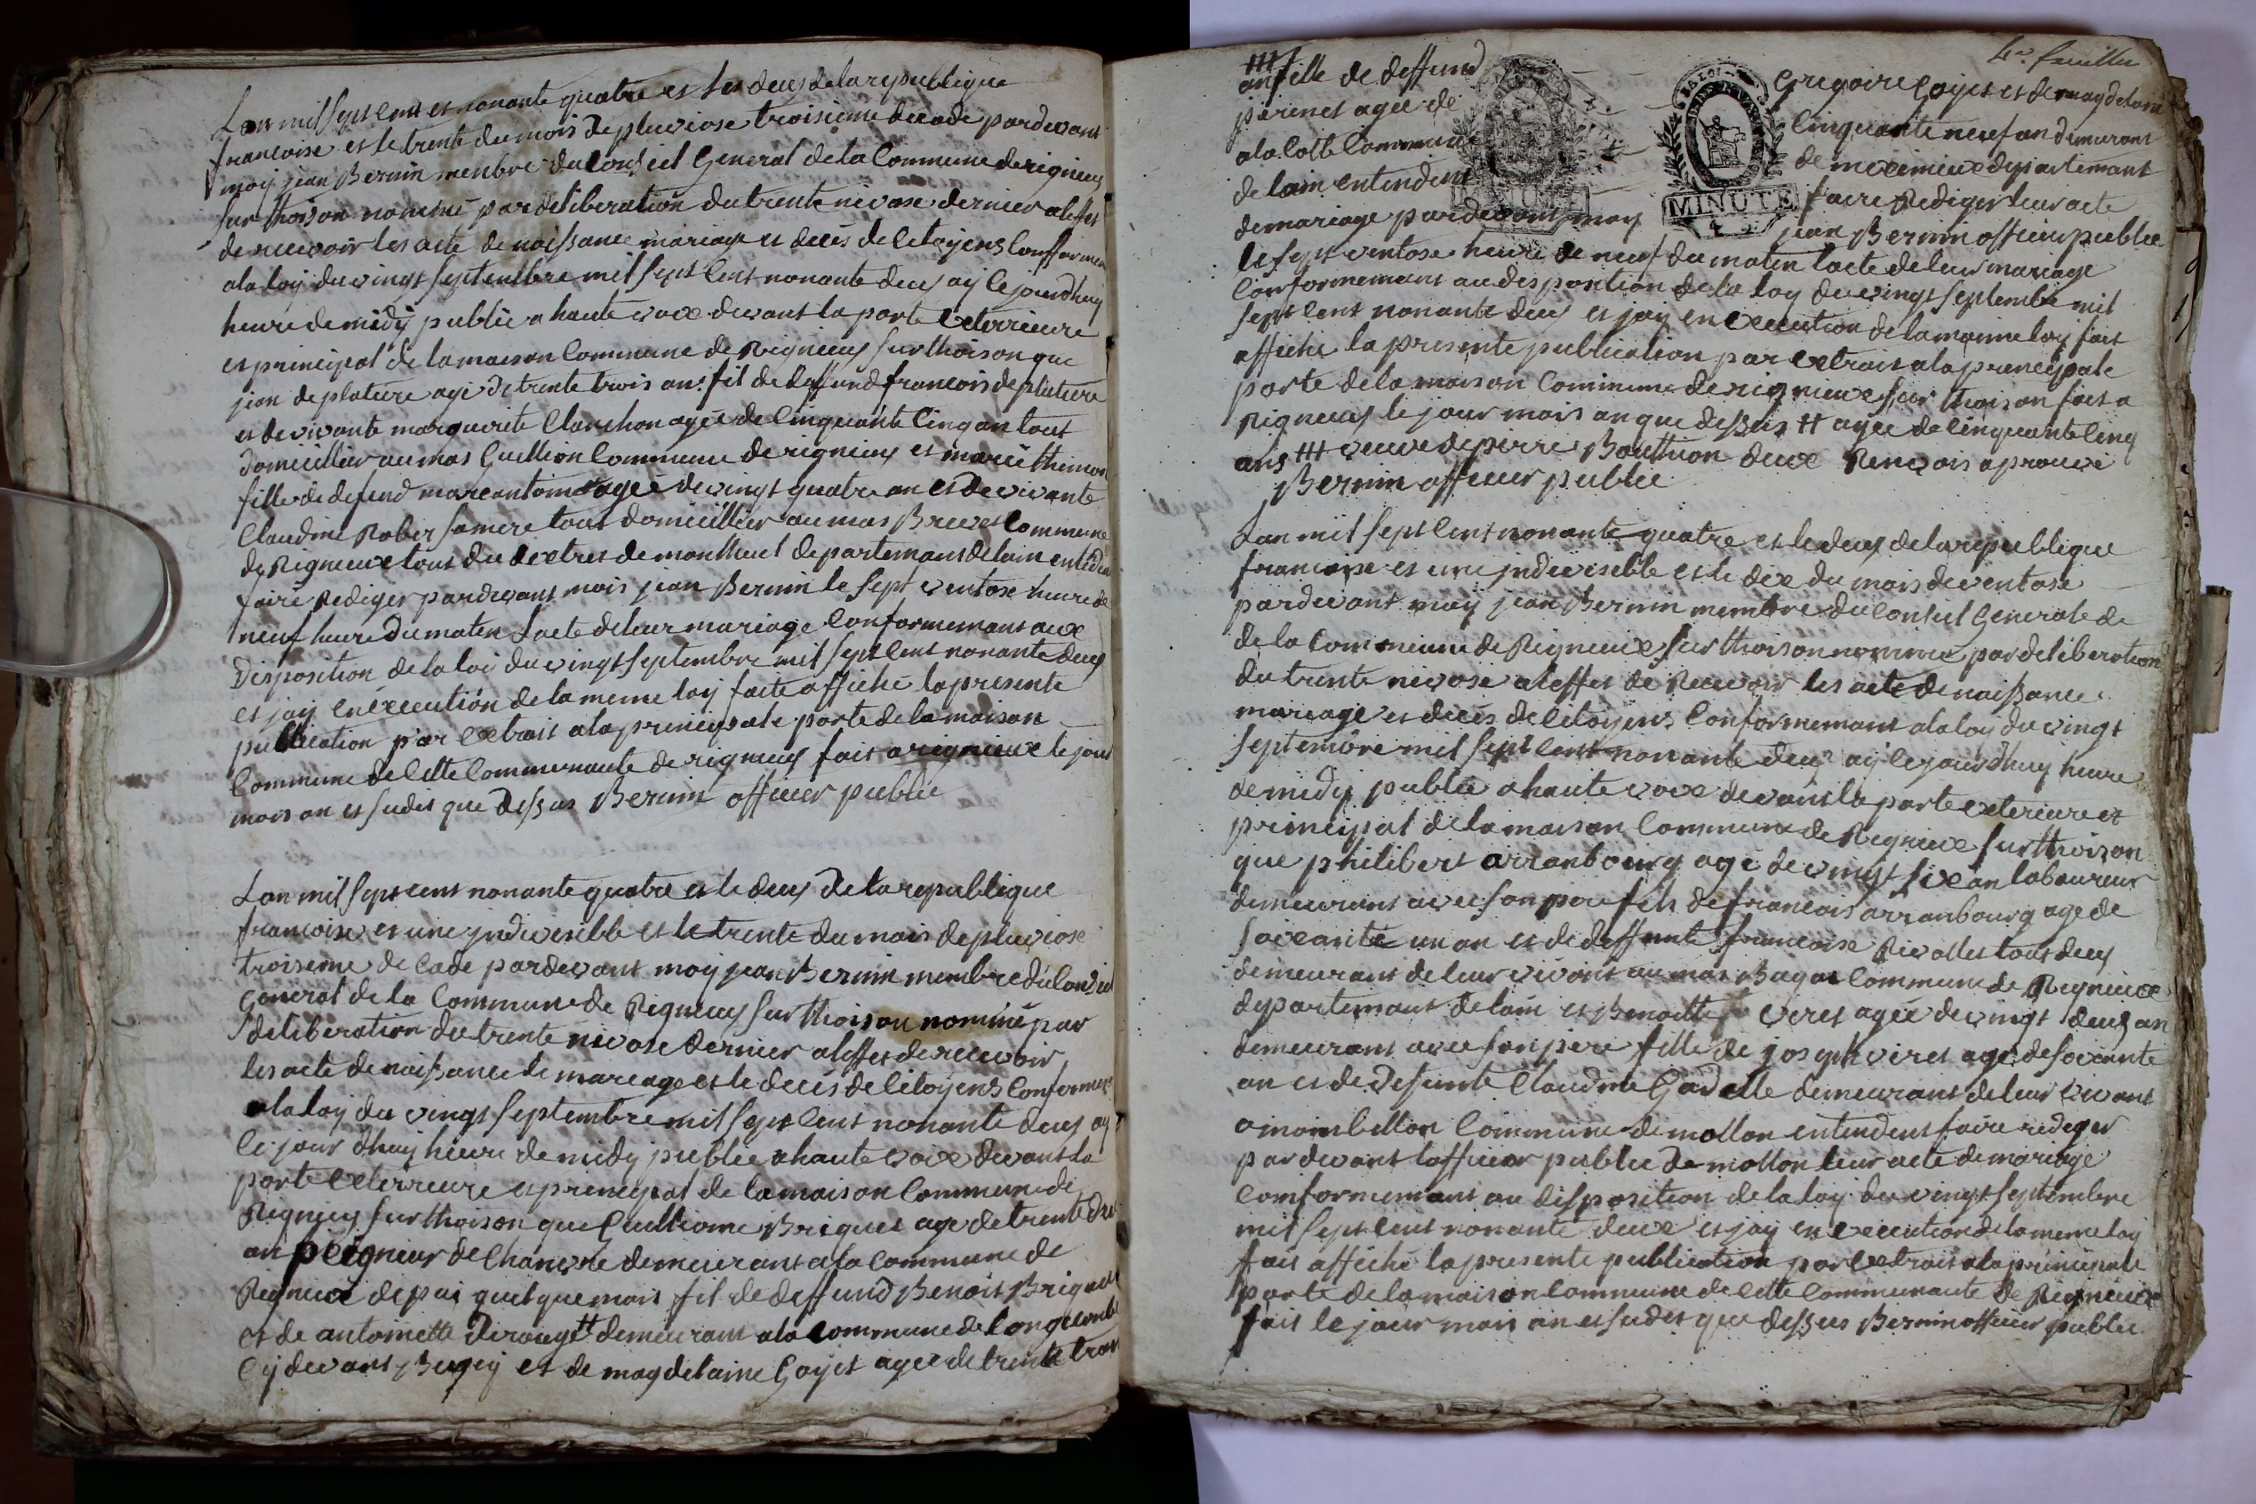 Lan mil sept cent et nonante quatre et les deus de la republique
francoise et le trente du mois de pluviose troisieme decade pardevant
moy jean Bernin menbre du conseil General de la Commune de rigneus
sur thoison nommé par deliberation du trente nivose dernier a leffet
de recevoir les acte de naissance mariage et deces de citoyens Confformem
a la loy du vingt septembre mil sept cent nonante deus ay le jourdhuy
heure de midy publié a haute voix devant la porte exterrieure
et principal de la maison Commune de Rigneus sur thoison que
jean de plature agé de trente trois ans fil de deffund francois de plature
et de vivante marguerite Clanchon agée de cinquante cinq an tout
domicillier au mas Guillion Commune de rigneus et marie thimon
fille de defund marcantoine agée de vingt quatre an et de vivante
Claudine Rober sa mere tout domicillier au mas Brevet Commune
de Rigneux tous du dextres de monthuel departemans de lain entendu
faire Rediger pardevant mois jean Bernin le sept ventose heure de
neuf heure du maten lacte de leur mariage Conformemans aux
disposition de la loi du vingt septembre mil sept cent nonante deus
et jay en execution de la meme loy faite affiché la presente
publication par extrait a la principale porte de la maison
Commune de cette Communaute de rigneus fait a rignieux le jour
mois an et sudit que dessus Bernin officier publie
Lan mil sept cent nonante quatre et le deus de la republique
francoise et une jndivisible et le trente du mois de pluviose
troiseme decade pardevant moy jean Bernin membre du Conseil
General de la Commune de Rigneus sur thoison nominé par
deliberation du trente nivose dernier a leffet de recevoir
les acte de naissance de mareage et le deces de citoyens Conformem
a la loy du vingt septembre mil sept cent nonante deus ay
le jour dhuy heure de midy publie a haute voix devant la
porte exterrieure et prencipal de la maison Commune de
Rigneus sur thoison que Guilliome Briquet age de trente deux
an peigneur de Chanvre demeurant a la Commune de
Rigneux depui quelque mois fil de deffund Benoit Briquet
et de antoinette # demeurant a la Commune de longecombe
cy devant Bugey et de magdelaine Goyet agee de trente trois
4e feuillie
### an fille de deffund Gregoire Goyet et de magdelaine
parenet agee de Cinquante neuf an demeurant
a la Cotte Commune de meximieux departemant
de lain entendent faire Rediger leur acte
de mariage pardevant moy jean Bernin officier publie
MINUTE
MINUTE
le sept ventose heure de neuf du maten lacte de leur mariage
Conformemans au desposition de la loy du vingt septembre mil
sept cent nonante deus et jay en execution de la maime loy fait
affiché la presente publication par extrait a la prencipale
porte de la maison Commune de rignieux sur thoison fait a
Rigneus le jour mois an que dessus # agee de cinquante cinq
ans ### veuve de pierre Bouthion deux Renvois aprouvé
Bernin officier publie
Lan mil sept cent nonante quatre et le deus de la republique
francoise et une jndiviseblle et le dix du mois de ventose
pardevant moy jean Bernin membre du Conseil Generale de
de la Commune de Rigneux sur thoison nommé par deliberation
du trente nivose a leffet de Recevoir les acte de naissance
mariage et deces de citoyens Conformemant a la loy du vingt
septembre mil sept cent nonante deus ay le jour dhuy heure
de midy publié a haute voix devant la porte exterieure et
principal de la maison Commune de Rigneux sur thoison
que philibert arranbourg agé de vingt six an laboureur
demeurant avec son pere fils de francois arranbourg age de
soixante un an et de deffunte francoise Rivollet tout deus
demeurant de leur vivant au mas Bagat Commune de Rigneux
departemant de lain et Benoitte veret agée de vingt deus an
demeurant avec son pere fille de joseph viret agé de soixante
an et de defunte Claudine Gadolle demeurant de leur vivant
a mombellon Commune de mollon entendent faire rediger
pardevant lofficier publie de mollon leur acte de mariage
Conformemant au disposition de la loy du vingt septembre
mil sept cent nonante deux et jay en execution de la meme loy
fait affiché la presente publication par extrait a la principale
porte de la maison Commune de cette Communaute de Rignieux
fait le jour mois an et sudet que dessus Bernin officier publie